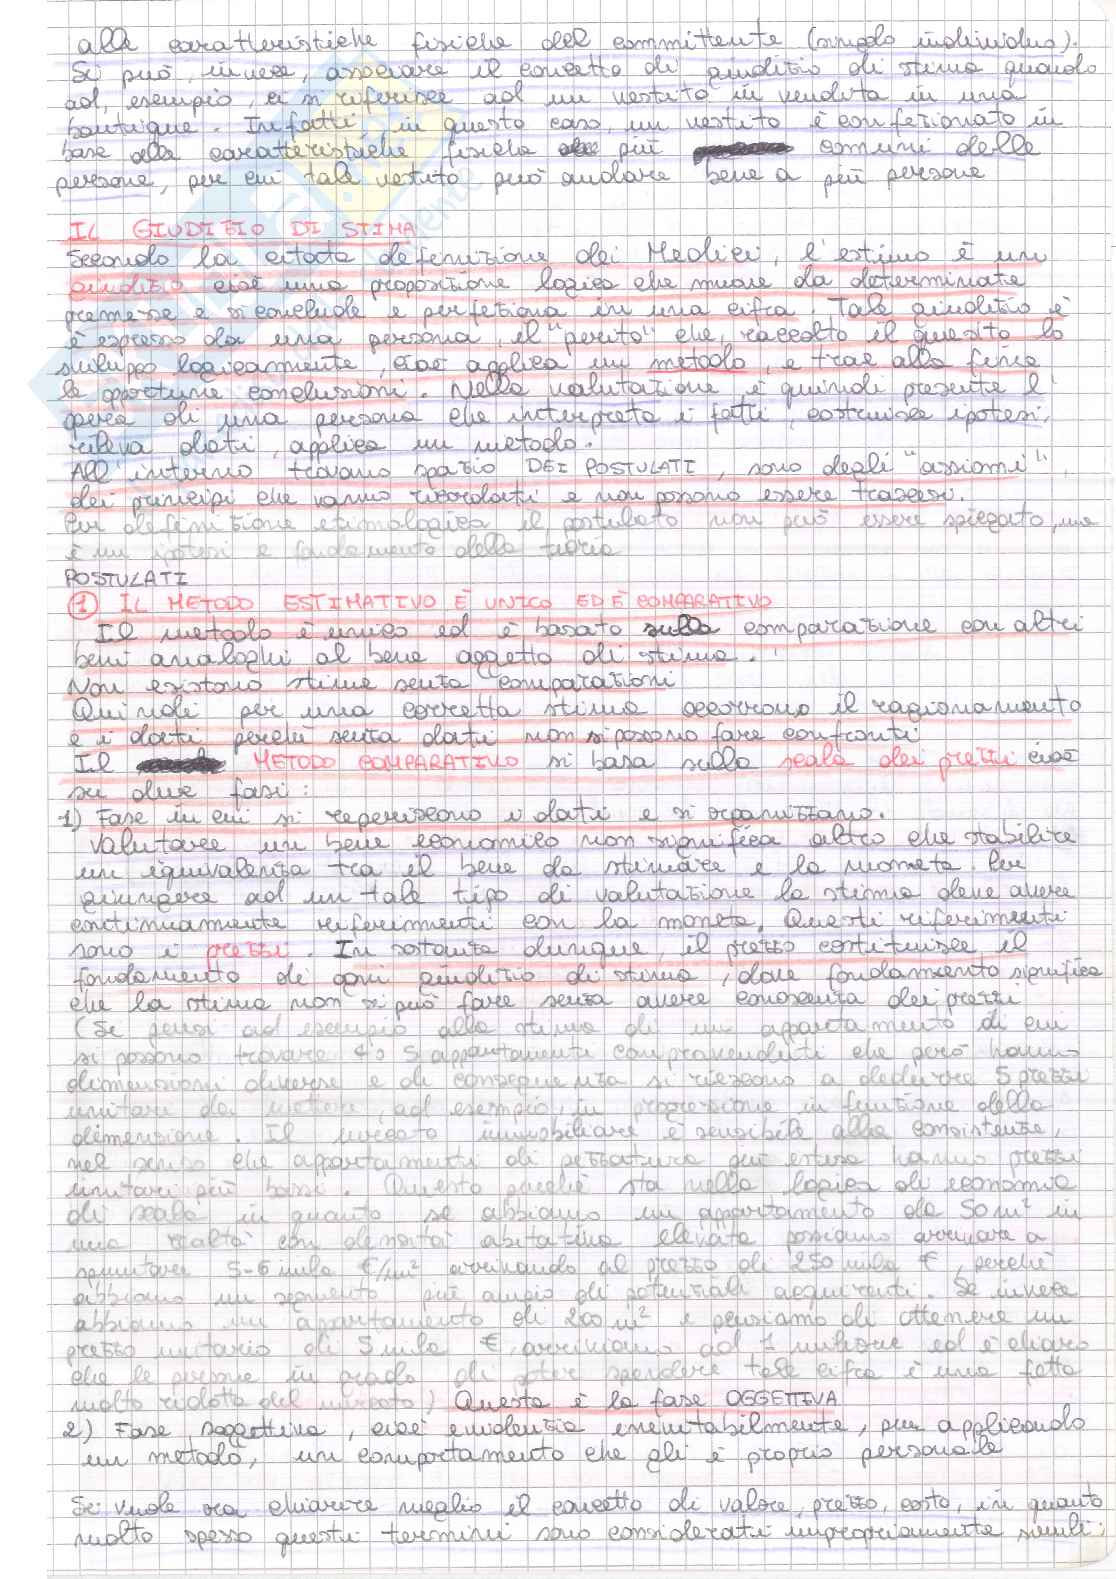 alle caratteristiche fisiche del committente (singolo individuo).
Si può, invece, associare il concetto di giuditio di stima quando
ad, esempio, ci si riferisce ad un vestito in vendita in una
boutique. Infatti, in questo caso, un vestito è confezionato in
base alle caratteristiche fisiche più comuni delle
persone, per cui tale vestito può andare bene a più persone
IL GIUDIZIO DI STIMA
Secondo la citata definizione del Medici, l'estimo è un
giuditio cioè una proposizione logica che muove da determinate
premesse e si conclude e perfeziona in una cifra. Tale giuditio è
è espresso da una persona, il "perito" che, raccolto il quesito lo
sviluppa logicamente, cioè applica un metodo, e trae alla fine
le opportune conclusioni. Nella valutazione è quindi presente l'
opera di una persona che interpreta i fatti, costruisce ipotesi,
rileva dati, applica un metodo.
All'interno trovano spazio DEI POSTULATI, sono degli "assiomi",
dei principi che vanno ricordati e non possono essere trascesi.
Per definizione etimologica il postulato non può essere spiegato, ma
è un ipotesi e fondamento della teoria
POSTULATI
1 IL METODO ESTIMATIVO È UNICO ED È COMPARATIVO
Il metodo è unico ed è basato sulla comparazione con altri
beni analoghi al bene oggetto di stima.
Non esistono stime senza comparazioni
Quindi per una corretta stima occorrono il ragionamento
e i dati perché senza dati non si possono fare confronti
Il METODO COMPARATIVO si basa sulla scala dei prezzi cioè
su due fasi:
1) Fase in cui si reperiscono i dati e si organizzano.
Valutare un bene economico non significa altro che stabilire
un equivalenza tra il bene da stimare e la moneta. Per
giungere ad un tale tipo di valutazione la stima deve avere
continuamente riferimenti con la moneta. Questi riferimenti
sono i prezzi. In sostanza dunque, il prezzo costituisce il
fondamento di ogni giuditio di stima, dove fondamento significa
che la stima non si può fare senza avere conoscenza dei prezzi
(Si pensi ad esempio alla stima di un appartamento di cui
si possono trovare 4 o 5 appartamenti compravenduti che però hanno
dimensioni diverse e di conseguenza si riescono a dedurre 5 prezzi
unitari da mettere, ad esempio, in progressione in funzione della
dimensione. Il mercato immobiliare è sensibile alla consistenza,
nel senso che appartamenti di pezzatura più estesa hanno prezzi
unitari più bassi. Questo perché sta nella logica di economia
di scala in quanto se abbiamo un appartamento da 50 m² in
una realtà con densità abitativa elevata possiamo arrivare a
spuntare 5-6 mila €/m² arrivando al prezzo di 250 mila €, perché
abbiamo un segmento più ampio di potenziali acquirenti. Se invece
abbiamo un appartamento di 200 m² e pensiamo di ottenere un
prezzo unitario di 5 mila €, arriviamo ad 1 milione ed è chiaro
che le persone in grado di poter spendere tale cifra è una fetta
molto ridotta del mercato) Questa è la fase OGGETTIVA
2) Fase soggettiva, cioè evidenzia inevitabilmente, pur applicando
un metodo, un comportamento che gli è proprio personale
Si vuole ora chiarire meglio il concetto di valore, prezzo, costo, in quanto
molto spesso questi termini sono considerati impropriamente simili.